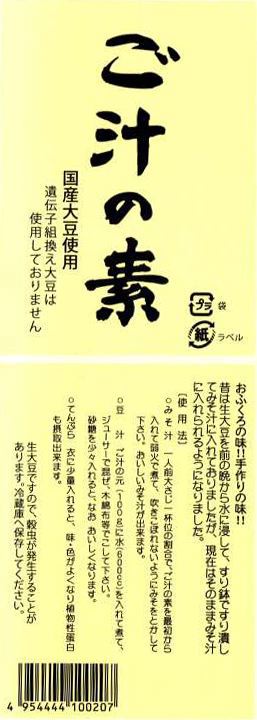 ご汁の素
国産大豆使用
遺伝子組換え大豆は
使用しておりません
プラ
袋
紙
ラベル
おふくろの味!!手作りの味!!
昔は生大豆を前の晩から水に浸して、すり鉢ですり潰し
てみそ汁に入れておりましたが、現在はそのままみそ汁
に入れられるようになりました。
〔使用法〕
○みそ汁 一人前大さじ一杯位の割合で、ご汁の素を最初から
入れて弱火で煮て、吹きこぼれないようにみそをとかして
下さい。おいしいみそ汁が出来ます。
○豆汁 ご汁の元(100g)に水(600cc)を入れて煮て、
ジューサーで混ぜ、木綿布等でこして下さい。
砂糖を少々入れると、なお おいしくなります。
○てんぷら 衣に少量入れると、味・色がよくなり植物性蛋白
も摂取出来ます。
生大豆ですので、穀虫が発生することが
あります。冷蔵庫へ保存してください。
4 954444 100207